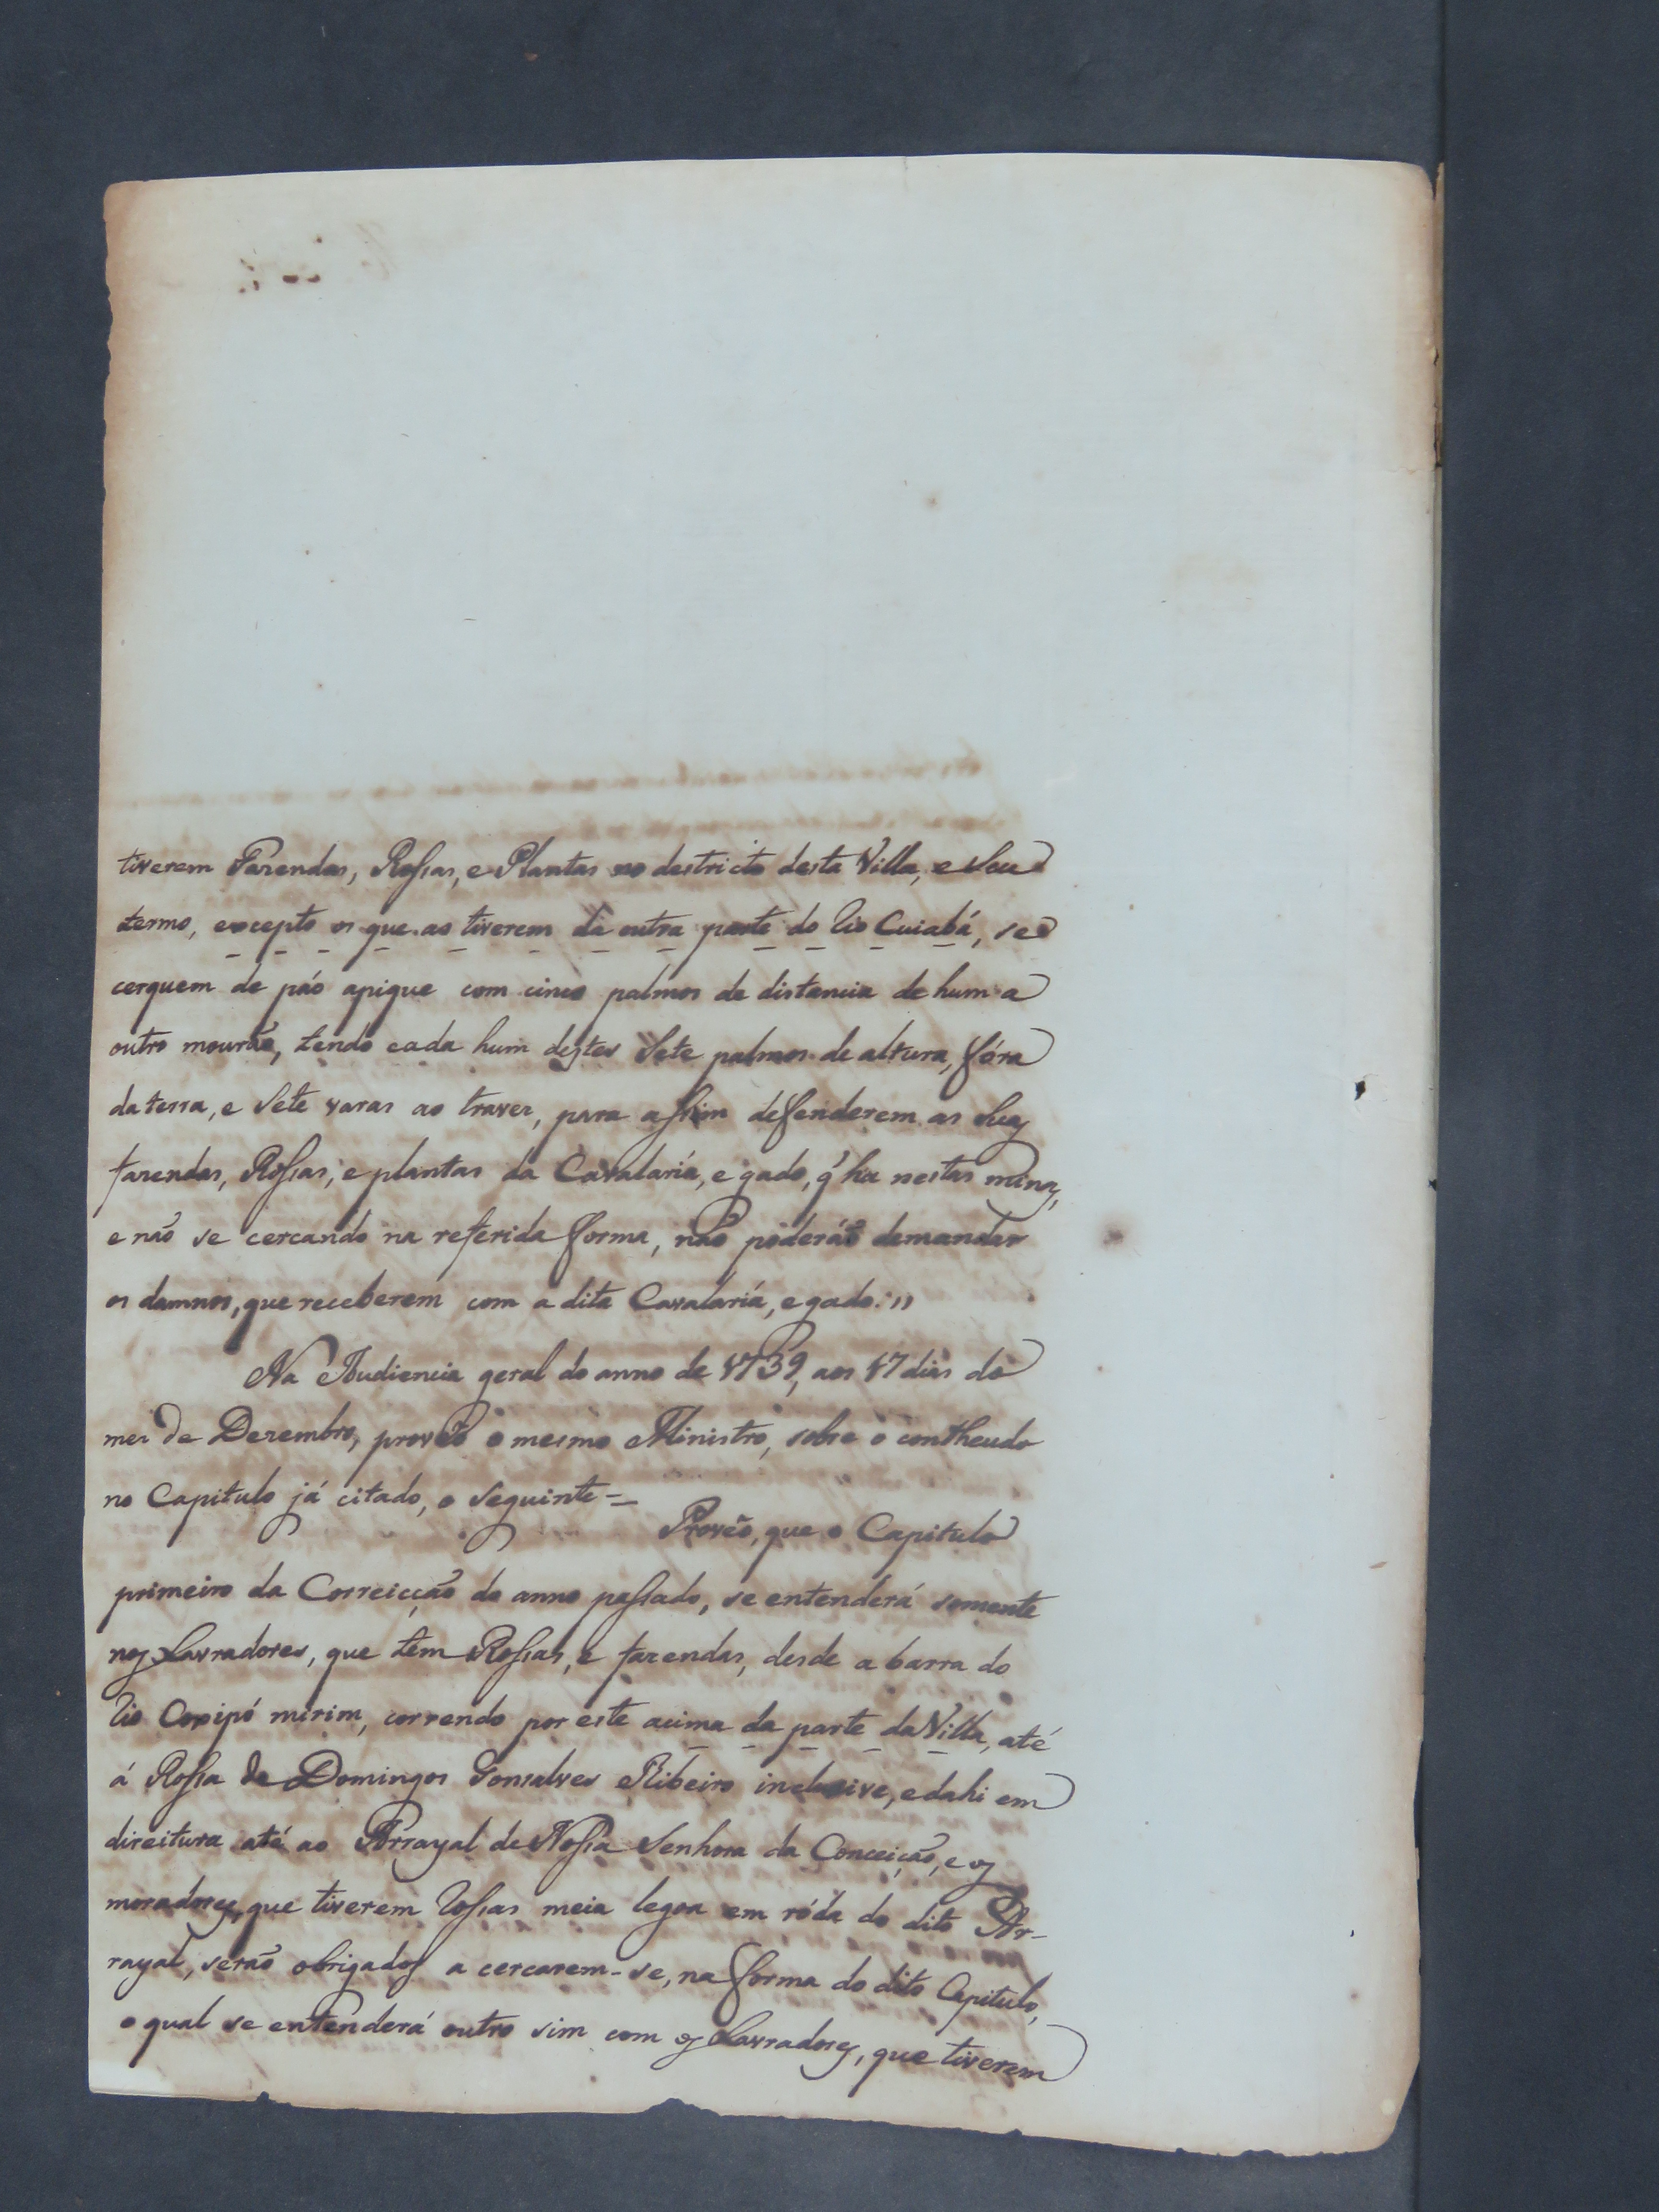 tiverem Fazendas, Rossas, e Plantas no destricto desta Villa, e Seu
termo, excepto os que as tiverem da outra parte do Rio Cuiabá, se
cerquem de páo apique com cinco palmos de distancia de hum a
outro mourão, tendo cada hum destes Sete palmos de altura, fóra
da terra, e Sete varas ao travez, para assim defenderem as Suas
fazendas, Rossas, e plantas da Cavalaría, e gado, q̃ ha nestas minas,
e não se cercando na referida forma, não poderáõ demandar
os damnos, que receberem com a dita Cavalaría, e gado."
Na Audiencia geral do anno de 1739, aos 17 dias do
mez de Dezembro, proveo o mesmo Ministro, sobre o contheudo
no Capitulo já citado, o Seguinte =
Proveo, que o Capitulo
primeiro da Correicção do anno passado, se entenderá somente
nos Lavradores, que têm Rossas, e fazendas, desde a barra do
Rio Coxipó mirim, correndo por este acima da parte da Villa, até
á Rossa de Domingos Gonsalves Ribeiro inclusive, e dahi em
direitura até ao Arrayal de Nossa Senhora da Conceição, e os
moradores, que tiverem Rossas meia legoa em róda do dito Ar-
rayal, serão obrigados a cercarem-se, na forma do dito Capitulo,
o qual se entenderá outro sim com os Lavradores, que tiverem